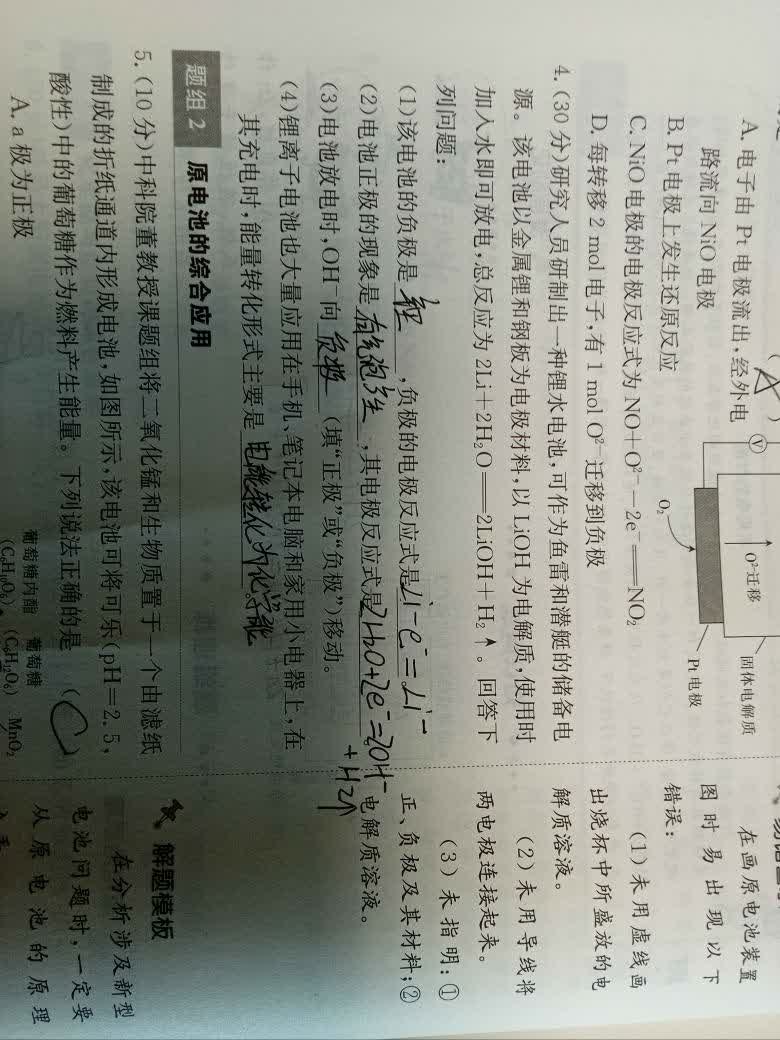 A. 电子由 Pt 电极流出,经外电
路流向 NiO 电极
B. Pt 电极上发生还原反应
C. NiO 电极的电极反应式为 NO+O²⁻-2e⁻══NO₂
D. 每转移 2 mol 电子,有 1 mol O²⁻迁移到负极
V
O₂
O²⁻迁移
固体电解质
Pt电极
4. (30 分)研究人员研制出一种锂水电池,可作为鱼雷和潜艇的储备电
源。该电池以金属锂和钢板为电极材料,以 LiOH 为电解质,使用时
加入水即可放电,总反应为 2Li+2H₂O══2LiOH+H₂↑。回答下
列问题:
(1)该电池的负极是 锂 ,负极的电极反应式是 Li-e⁻=Li⁻
(2)电池正极的现象是 有气泡产生 ,其电极反应式是 2H₂O+2e⁻=2OH⁻
+H₂↑
(3)电池放电时,OH⁻向 负极 (填“正极”或“负极”)移动。
(4)锂离子电池也大量应用在手机、笔记本电脑和家用小电器上,在
其充电时,能量转化形式主要是 电能转化为化学能 。
题组 2 原电池的综合应用
5. (10 分)中科院董教授课题组将二氧化锰和生物质置于一个由滤纸
制成的折纸通道内形成电池,如图所示,该电池可将可乐(pH=2.5,
酸性)中的葡萄糖作为燃料产生能量。下列说法正确的是 (C)
A. a 极为正极
葡萄糖内酯 葡萄糖
(C₆H₁₀O₆) (C₆H₁₂O₆) MnO₂
在画原电池装置
图时易出现以下
错误:
(1)未用虚线画
出烧杯中所盛放的电
解质溶液。
(2)未用导线将
两电极连接起来。
(3)未指明:①
正、负极及其材料;②
电解质溶液。
解题模板
在分析涉及新型
电池问题时,一定要
从原电池的原理